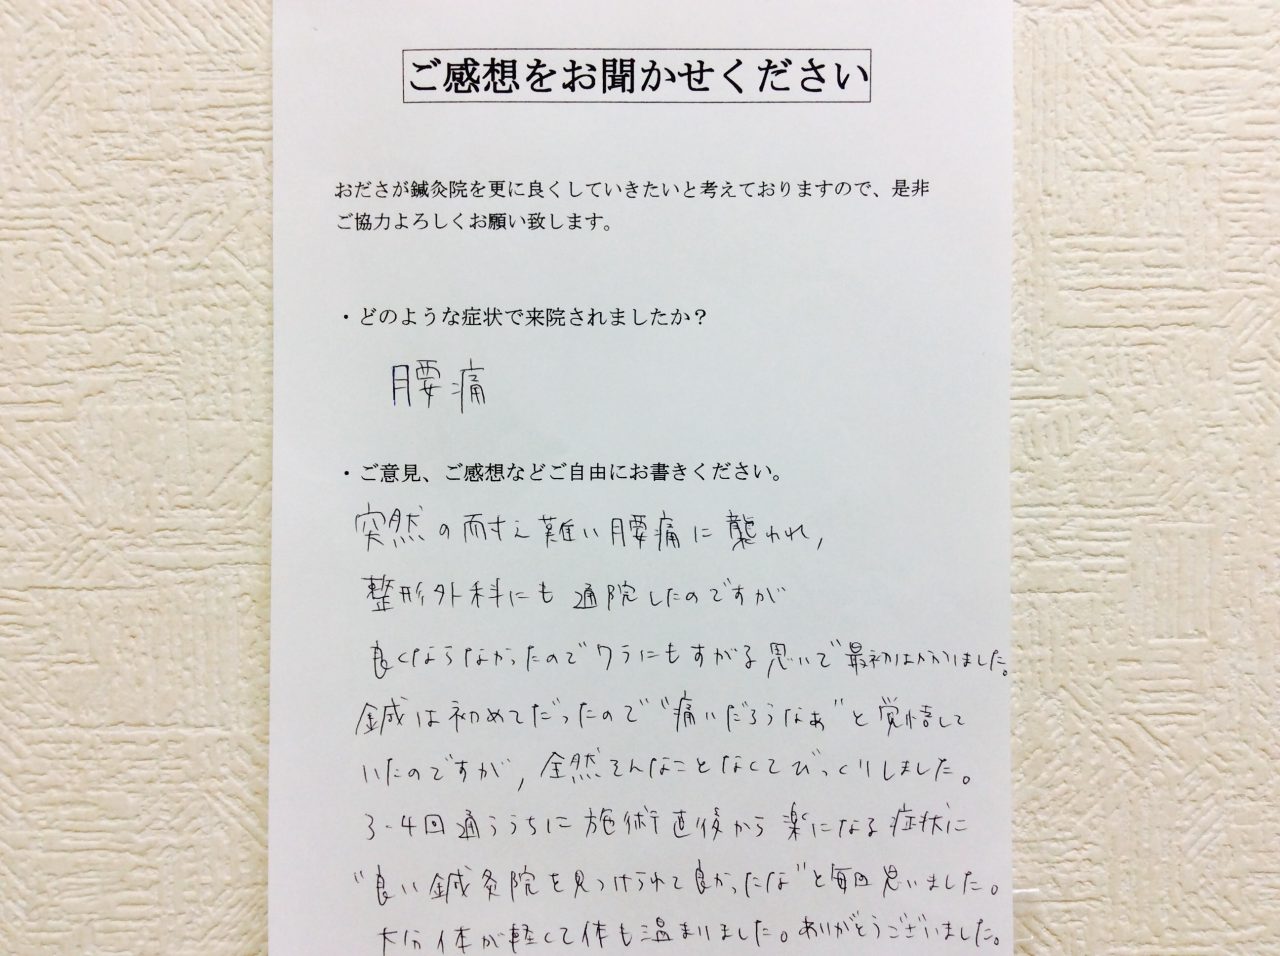 ご感想をお聞かせください
おださが鍼灸院を更に良くしていきたいと考えておりますので、是非
ご協力よろしくお願い致します。
・どのような症状で来院されましたか？
腰痛
・ご意見、ご感想などご自由にお書きください。
突然の耐え難い腰痛に襲われ,
整形外科にも通院したのですが
良くならなかったのでワラにもすがる思いで最初はかかりました。
鍼は初めてだったので"痛いだろうなぁ"と覚悟して
いたのですが, 全然そんなことなくてびっくりしました。
3-4回通ううちに施術直後から楽になる症状に
"良い鍼灸院を見つけられて良かったな"と毎回思いました。
大分体が軽くて体も温まりました。ありがとうございました。